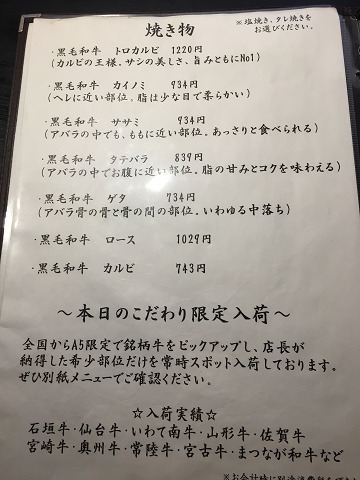 焼き物
※塩焼き、タレ焼きを
お選びください。
・黒毛和牛 トロカルビ 1220円
(カルビの王様。サシの美しさ、旨みともにNo1)
・黒毛和牛 カイノミ 934円
(ヘレに近い部位。脂は少な目で柔らかい)
・黒毛和牛 ササミ 934円
(アバラの中でも、ももに近い部位。あっさりと食べられる)
・黒毛和牛 タテバラ 839円
(アバラの中でお腹に近い部位。脂の甘みとコクを味わえる)
・黒毛和牛 ゲタ 734円
(アバラ骨の骨と骨の間の部位。いわゆる中落ち)
・黒毛和牛 ロース 1029円
・黒毛和牛 カルビ 743円
～本日のこだわり限定入荷～
全国からA5限定で銘柄牛をピックアップし、店長が
納得した希少部位だけを常時スポット入荷しております。
ぜひ別紙メニューでご確認ください。
☆入荷実績☆
石垣牛・仙台牛・いわて南牛・山形牛・佐賀牛
宮崎牛・奥州牛・常陸牛・宮古牛・まつなが和牛など
※お会計時に別途消費税を